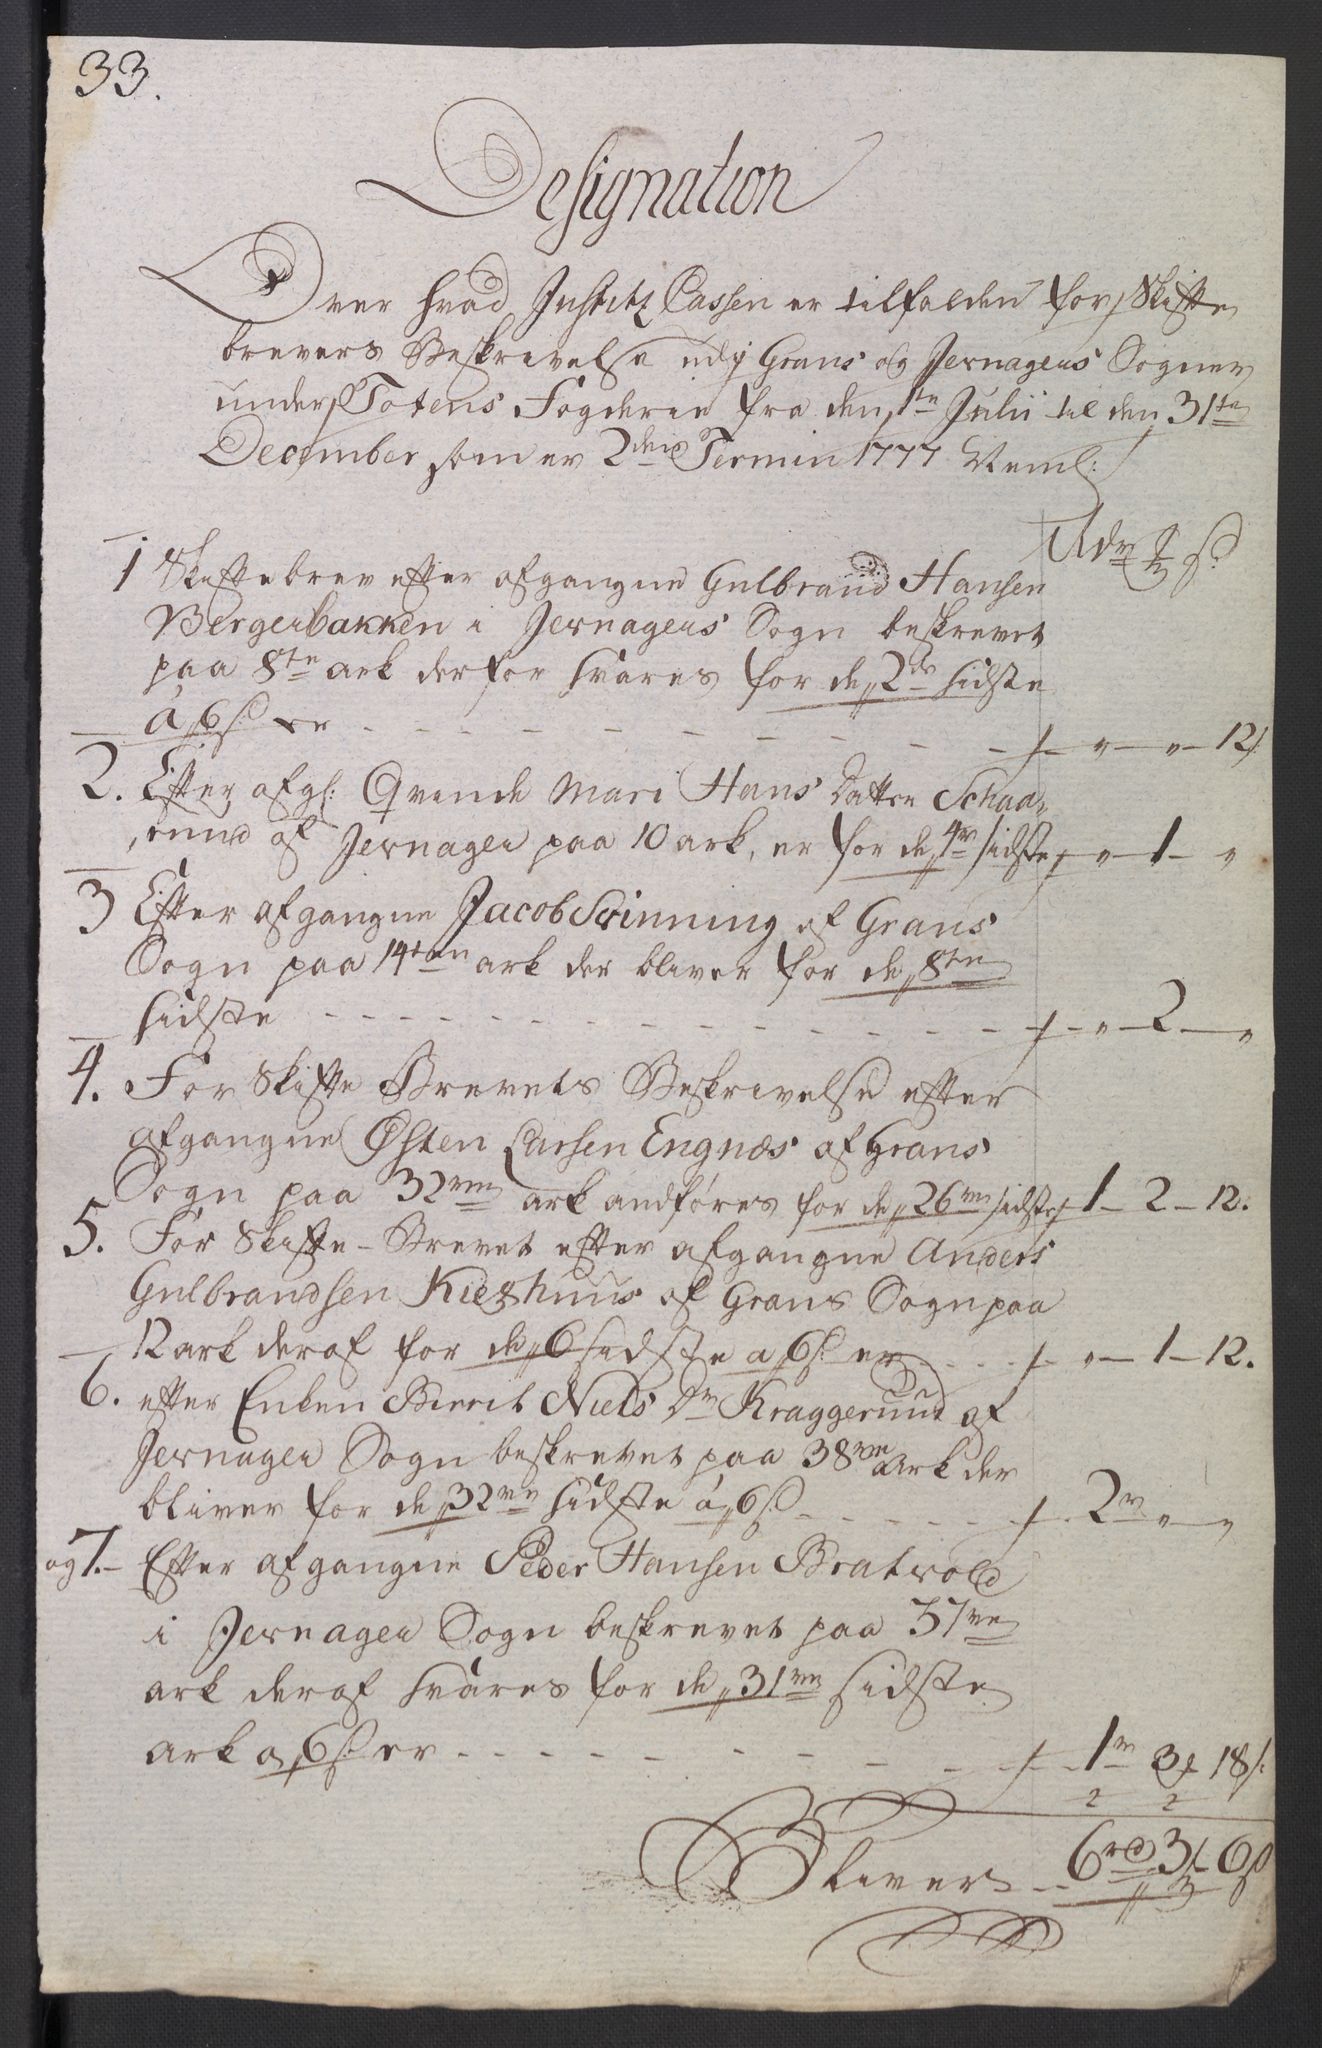 33.
Designation
Over hvad Justitz Cassen er tilfalden for Skifte
brevers Beskrivelse udj Grans og Jernagers Sogner
under Totens Fogderie fra den 1te Julii til den 31te
December som er 2den Termin 1777 Neml:
Rdr ß
1 Skiftebrev efter afgangne Gulbrand Hansen
Bergerbakken i Jernagers Sogn beskrevet
paa 8te ark derfor svares for de 2de sidste
á 6ß er - - - - - - - - - „ — „ — 12ß
2. Efter afg: Qvinde Mari Hans Datter Schaa,
,rund af Jernager paa 10 ark, er for de 4re sidste „ — 1 — „
3 Efter afgangne Jacob Svinning af Grans
Sogn paa 14ten ark der bliver for de 8te
sidste - - - - - - - - - - „ — 2 — „
4. For Skifte Brevets Beskrivelse efter
afgangne Østen Larsen Engnæs af Grans
Sogn paa 32ve ark andføres for de 26ve sidste 1 — 2 — 12.
5. For Skifte-Brevet efter afgangne Anders
Gulbrandsen Kieghuus af Grans Sogn paa
12 ark deraf for de 6 sidste a 6ß er - - - - „ — 1 — 12.
6. efter Enken Bierit Niels Dr Kraggerund af
Jernager Sogn beskrevet paa 38ve Ark der
bliver for de 32ve sidste á 6ß - - - - - 2r „ — „
og 7. Efter afgangne Peder Hansen Bratvold
i Jernager Sogn beskrevet paa 37ve
ark deraf svares for de 31ve sidste
ark a 6ß er - - - - - - - 1r 3 18ß
2 2
Bliver - - 6rd 3 6ß